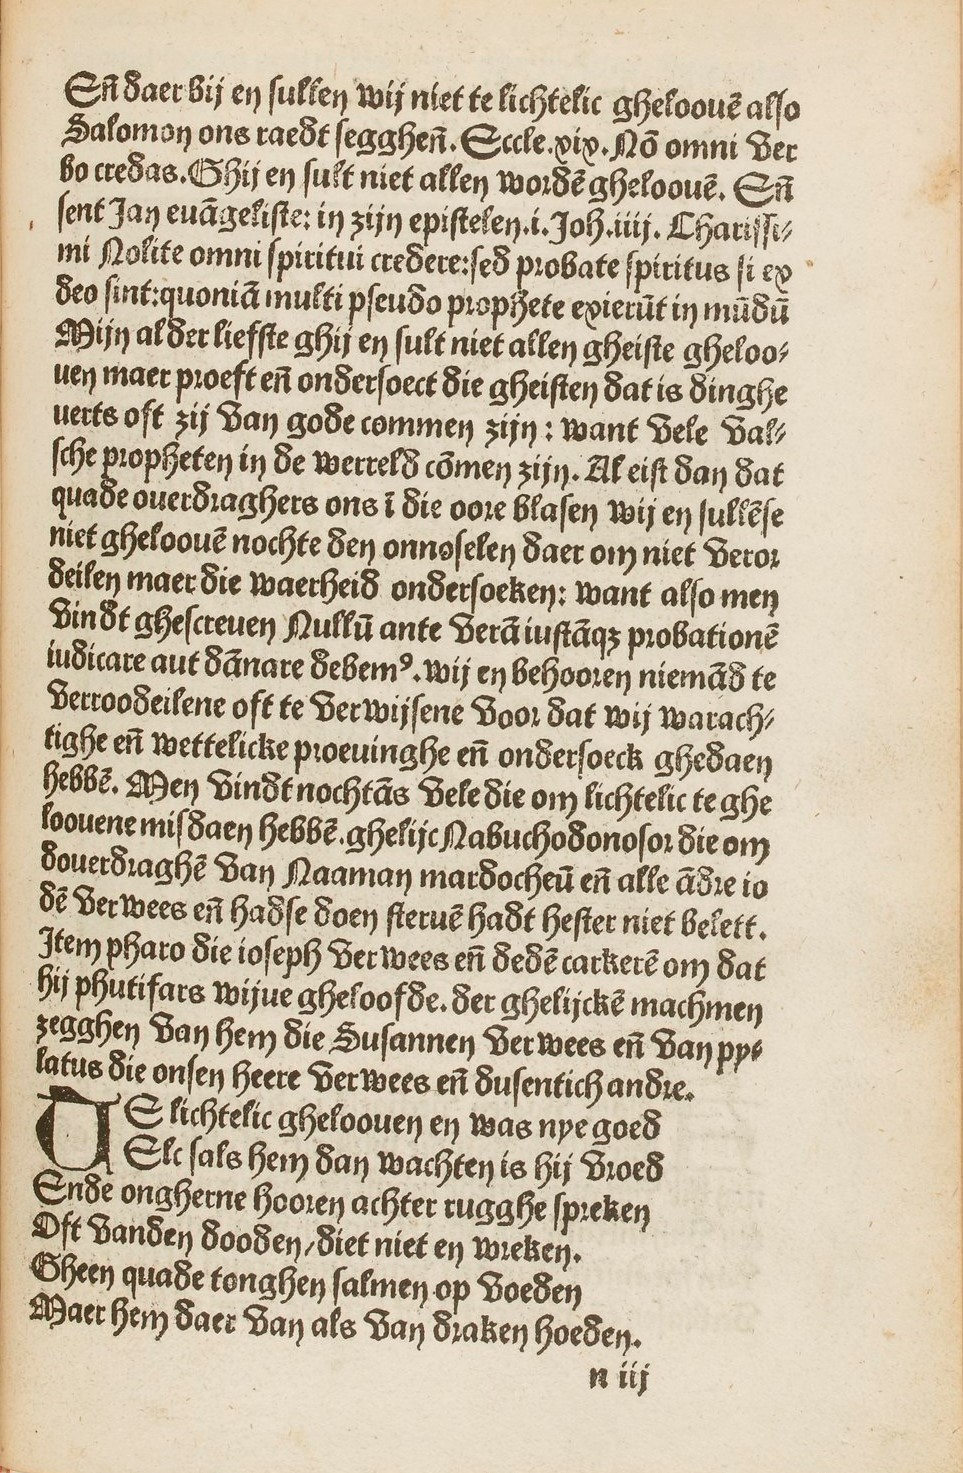 Eñ daer bij en sullen wij niet te lichtelic gheloouē also
Salomon ons raedt segghen̄. Eccle.xix. Nō omni ver
bo credas. Ghij en sult niet allen wordē gheloouē. Eñ
sent Jan euāgeliste: in zijn epistelen.i. Joh.iiij. Charissi/
mi Nolite omni spiritui credere: sed probate spiritus si ex
deo sint: quoniā multi pseudo prophete exierūt in mūdū
Mijn alder liefste ghij en sult niet allen gheiste gheloo/
uen maer proeft eñ ondersoect die gheisten dat is dinghe
uerts oft zij van gode commen zijn: want vele val/
sche propheten in de werreld cōmen zijn. Al eist dan dat
quade ouerdraghers ons ī die oore blasen wij en sullēse
niet gheloouē nochte den onnoselen daer om niet veror
deilen maer die waerheid ondersoeken: want also men
vindt ghescreuen Nullū ante verā iustāqꝫ probationē
iudicare aut dānare debemꝰ. wij en behooren niemād te
verroodeilene oft te verwijsene voor dat wij warach/
tighe eñ wettelicke proeuinghe eñ ondersoeck ghedaen
hebbē. Men vindt nochtās vele die om lichtelic te ghe
loouene misdaen hebbē. ghelijc Nabuchodonosor die om
douerdraghē van Naaman mardocheū eñ alle ādre io
dē verwees eñ hadse doen steruē hadt hester niet belett.
Item pharo die ioseph verwees eñ dedē carkerē om dat
hij phutifars wijue gheloofde. der ghelijckē machmen
zegghen van hem die Susannen verwees eñ van py/
latus die onsen heere verwees eñ dusentich andre.
TE lichtelic gheloouen en was nye goed
Elc sals hem dan wachten is hij vroed
Ende ongherne hooren achter rugghe spreken
Oft vanden dooden/diet niet en wreken.
Gheen quade tonghen salmen op voeden
Maer hem daer van als van draken hoeden.
n iij